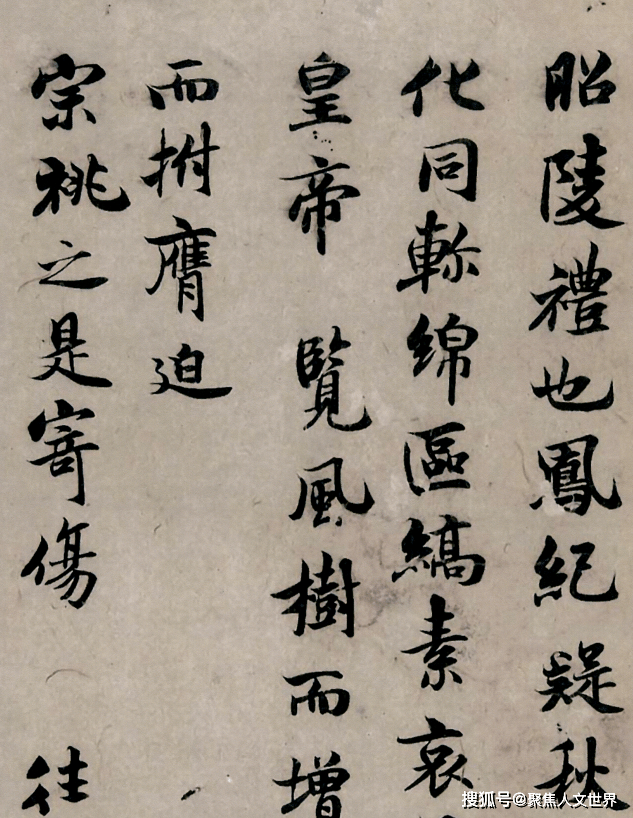 昭陵禮也鳳紀疑秋
化同軫綿區縞素哀
皇帝 覽風樹而增
而拊膺迫
宗祧之是寄傷 往
搜狐号@聚焦人文世界